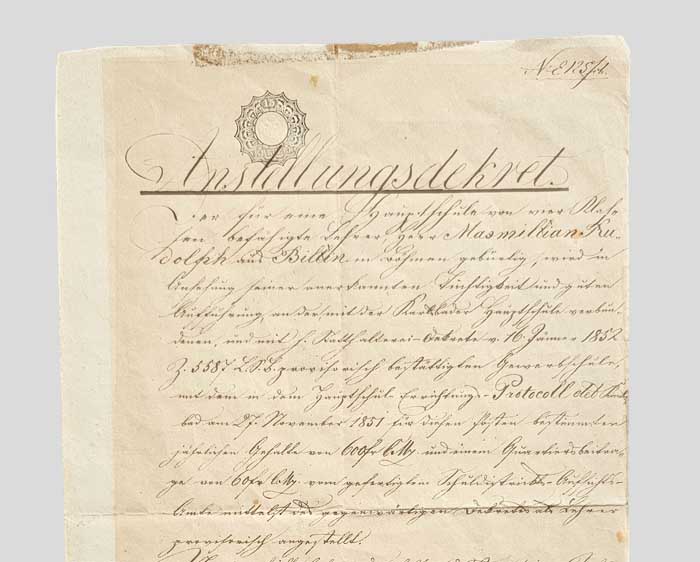 N: E 125/pr.
Anstellungsdekret.
Der für eine Hauptschule von vier Klas-
sen befähigte Lehrer Herr Maxmillian Ru-
dolph aus Billin in Böhmen gebürtig, wird in
Ansehung seiner anerkannten Tüchtigkeit und guten
Aufführung, an der mit der Karlsbader Hauptschule verbun-
denen, und mit h. Statthalterei-Dekrete v. 16. Jänner 1852
Z. 558 provisorisch bestättigten Gewerbschule,
mit dem in dem Hauptschul-Errichtungs-Protocoll
bad am 27. November 1851 für diesen Posten bestimmten
jährlichen Gehalte von 600 fr C.Mz. und einem Quartiersbeitra-
ge von 60 fr C.Mz. vom gefertigten Schuldistrikts-Aufsichts-
Amte mittelst des gegenwärtigen Dekretes als Lehrer
provisorisch angestellt.